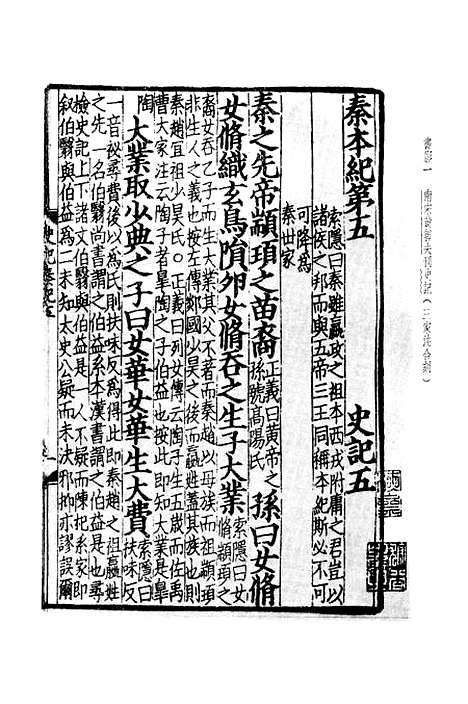 書影一　南宋黃善夫刊史記(三家注合刻)
秦本紀第五　史記五
索隱曰秦雖嬴政之祖本西戎附庸之君豈以
諸侯之邦而與五帝三王同稱本紀斯必不可
可降為
秦世家
秦之先帝顓頊之苗裔正義曰黃帝之孫號高陽氏孫曰女脩
女脩織玄鳥隕卵女脩吞之生子大業索隱曰女脩顓頊之
裔女吞乙子而生大業其父不著而秦趙以母族而祖顓頊
非生人之義也按左傳郯國少昊之後而嬴姓蓋其族也則
秦趙宜祖少昊氏○正義曰列女傳云陶子生五歲而佐禹
曹大家注云陶子者皋陶之子伯益也按此即知大業是皋
陶
大業取少典之子曰女華女華生大費索隱曰扶味反
一音祕尋費後以為氏則扶味反為得此即秦趙之祖嬴姓
之先一名伯翳尚書謂之伯益系本漢書謂之伯益是也尋
檢史記上下諸文伯翳與伯益是一人不疑而陳杞系家即
叙伯翳與伯益為二未知太史公疑而未決邪抑亦謬誤爾